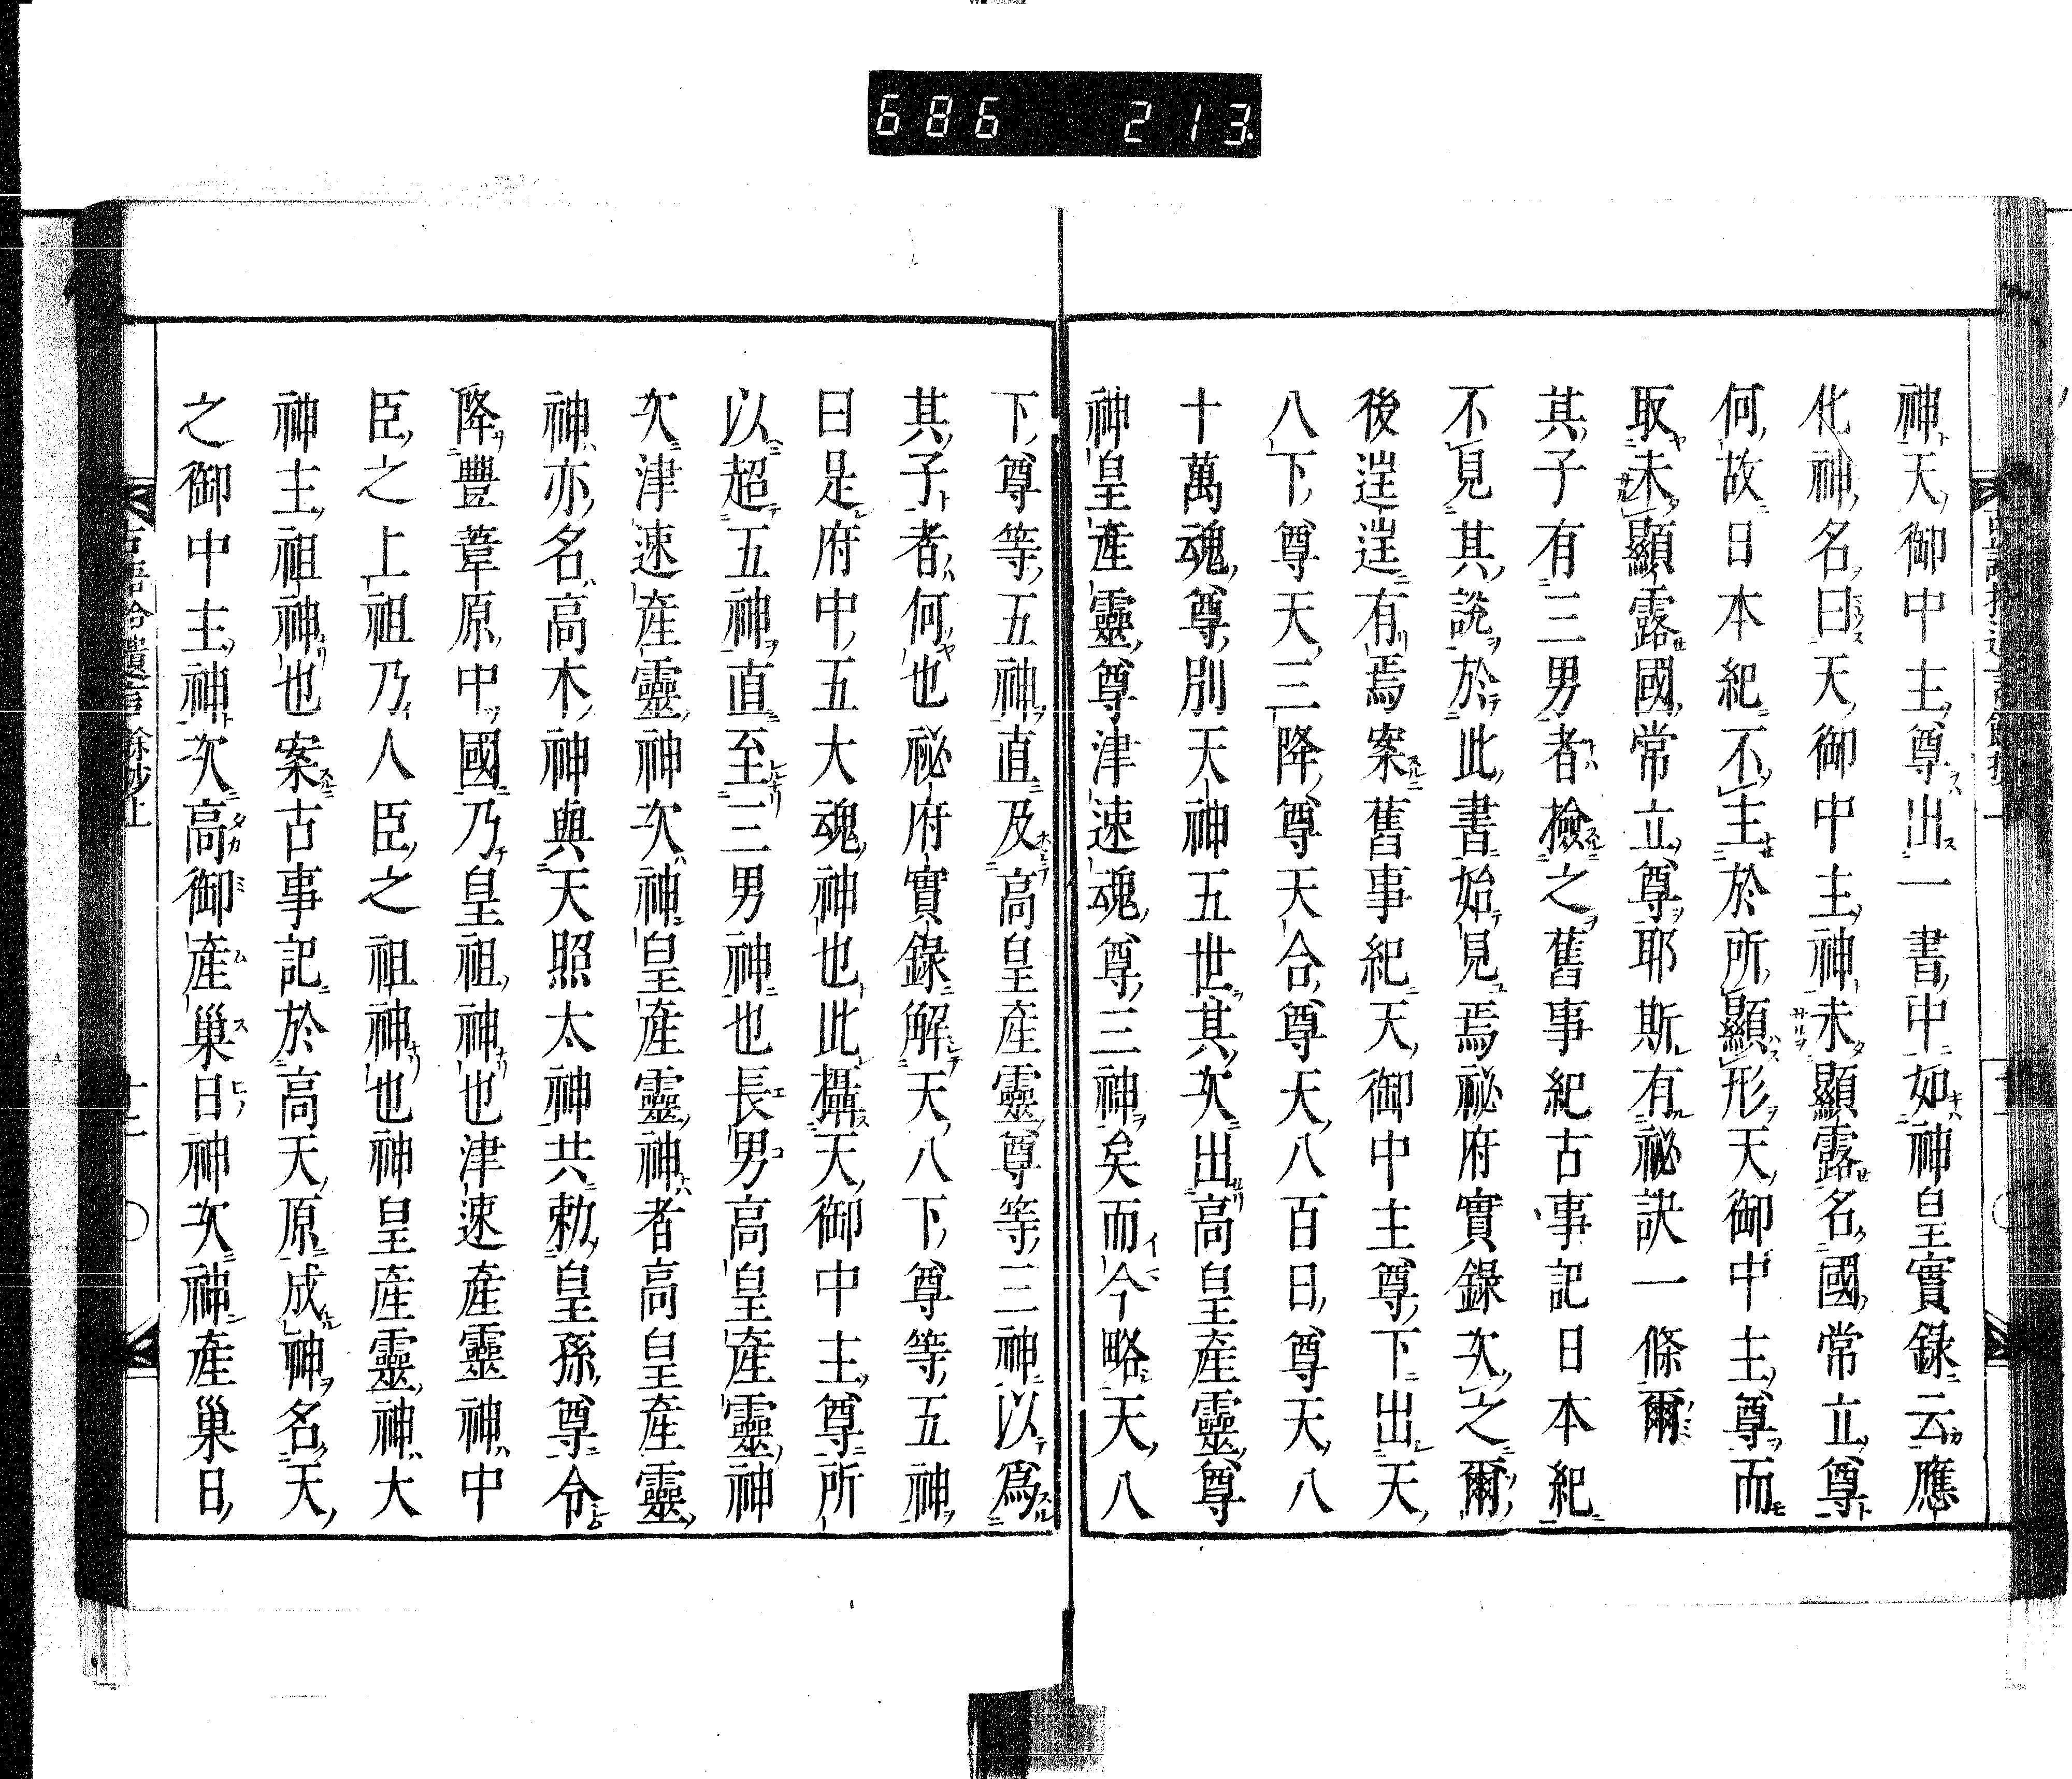 686 213
神天御中主尊出一書中如神皇實錄云應
化神名曰天御中主神未顯露名國常立尊
何故日本紀不主於所顯形天御中主尊而
取未顯露國常立尊耶斯有祕訣一條爾
其子有三男者撿之舊事紀古事記日本紀
不見其說於此書始見焉祕府實錄次之爾
後逞逞有焉案舊事紀天御中主尊下出天
八下尊天三降尊天合尊天八百日尊天八
十萬魂尊別天神五世其次出高皇產靈尊
神皇產靈尊津速魂尊三神矣而今略天八
下尊等五神直及高皇產靈尊等三神以爲
其子者何也祕府實錄解天八下尊等五神
曰是府中五大魂神也此攝天御中主尊所
以超五神直至三男神也長男高皇產靈神
次津速產靈神次神皇產靈神者高皇產靈
神亦名高木神與天照太神共勅皇孫尊令
降豐葦原中國乃皇祖神也津速產靈神中
臣之上祖乃人臣之祖神也神皇產靈神大
神主祖神也案古事記於高天原成神名天
之御中主神次高御產巢日神次神產巢日
古語拾遺言餘抄上